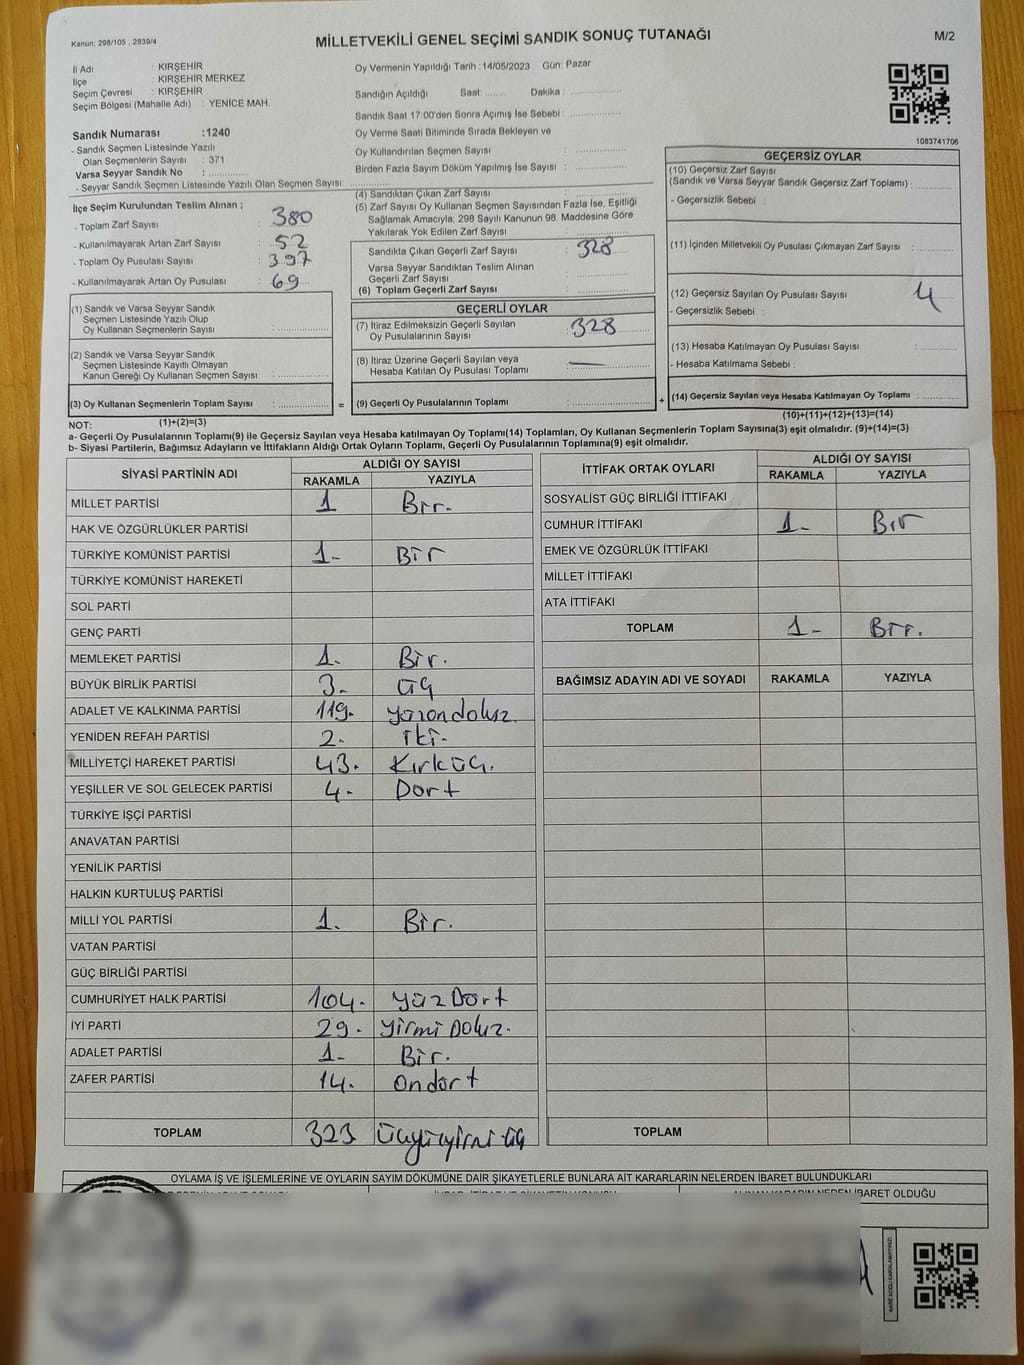 Kanun: 298/105 , 2839/4
MİLLETVEKİLİ GENEL SEÇİMİ SANDIK SONUÇ TUTANAĞI
M/2
İl Adı : KIRŞEHİR
İlçe : KIRŞEHİR MERKEZ
Seçim Çevresi : KIRŞEHİR
Seçim Bölgesi (Mahalle Adı) : YENİCE MAH.
Oy Vermenin Yapıldığı Tarih :14/05/2023 Gün: Pazar
Sandığın Açıldığı Saat: ........ Dakika : ....................
Sandık Saat 17:00'den Sonra Açımış İse Sebebi : ....................
Oy Verme Saati Bitiminde Sırada Bekleyen ve
Oy Kullandırılan Seçmen Sayısı : ....................
Birden Fazla Sayım Döküm Yapılmış İse Sayısı : ....................
1083741706
Sandık Numarası :1240
- Sandık Seçmen Listesinde Yazılı
Olan Seçmenlerin Sayısı : 371
Varsa Seyyar Sandık No : ....................
- Seyyar Sandık Seçmen Listesinde Yazılı Olan Seçmen Sayısı: ....................
İlçe Seçim Kurulundan Teslim Alınan ;
- Toplam Zarf Sayısı : 380
- Kullanılmayarak Artan Zarf Sayısı : 52
- Toplam Oy Pusulası Sayısı : 397
- Kullanılmayarak Artan Oy Pusulası : 69
(1) Sandık ve Varsa Seyyar Sandık
Seçmen Listesinde Yazılı Olup
Oy Kullanan Seçmenlerin Sayısı : ....................
(2) Sandık ve Varsa Seyyar Sandık
Seçmen Listesinde Kayıtlı Olmayan
Kanun Gereği Oy Kullanan Seçmen Sayısı : ....................
(3) Oy Kullanan Seçmenlerin Toplam Sayısı : .................... =
(4) Sandıktan Çıkan Zarf Sayısı : ....................
(5) Zarf Sayısı Oy Kullanan Seçmen Sayısından Fazla İse, Eşitliği
Sağlamak Amacıyla; 298 Sayılı Kanunun 98. Maddesine Göre
Yakılarak Yok Edilen Zarf Sayısı : ....................
Sandıkta Çıkan Geçerli Zarf Sayısı : 328
Varsa Seyyar Sandıktan Teslim Alınan
Geçerli Zarf Sayısı : ....................
(6) Toplam Geçerli Zarf Sayısı : ....................
GEÇERLİ OYLAR
(7) İtiraz Edilmeksizin Geçerli Sayılan
Oy Pusulalarının Sayısı : 328
(8) İtiraz Üzerine Geçerli Sayılan veya
Hesaba Katılan Oy Pusulası Toplamı : —
(9) Geçerli Oy Pusulalarının Toplamı : .................... +
GEÇERSİZ OYLAR
(10) Geçersiz Zarf Sayısı
(Sandık ve Varsa Seyyar Sandık Geçersiz Zarf Toplamı) : ............
- Geçersizlik Sebebi :
(11) İçinden Milletvekili Oy Pusulası Çıkmayan Zarf Sayısı : ............
(12) Geçersiz Sayılan Oy Pusulası Sayısı : 4
- Geçersizlik Sebebi :
(13) Hesaba Katılmayan Oy Pusulası Sayısı : ............
- Hesaba Katılmama Sebebi :
(14) Geçersiz Sayılan veya Hesaba Katılmayan Oy Toplamı : ............
NOT: (1)+(2)=(3)
(10)+(11)+(12)+(13)=(14)
a- Geçerli Oy Pusulalarının Toplamı(9) ile Geçersiz Sayılan veya Hesaba katılmayan Oy Toplamı(14) Toplamları, Oy Kullanan Seçmenlerin Toplam Sayısına(3) eşit olmalıdır. (9)+(14)=(3)
b- Siyasi Partilerin, Bağımsız Adayların ve İttifakların Aldığı Ortak Oyların Toplamı, Geçerli Oy Pusulalarının Toplamına(9) eşit olmalıdır.
SİYASİ PARTİNİN ADI ALDIĞI OY SAYISI
RAKAMLA YAZIYLA
MİLLET PARTİSİ 1 Bir.
HAK VE ÖZGÜRLÜKLER PARTİSİ
TÜRKİYE KOMÜNİST PARTİSİ 1- Bir
TÜRKİYE KOMÜNİST HAREKETİ
SOL PARTİ
GENÇ PARTİ
MEMLEKET PARTİSİ 1. Bir.
BÜYÜK BİRLİK PARTİSİ 3- üç
ADALET VE KALKINMA PARTİSİ 119. yüzondokuz.
YENİDEN REFAH PARTİSİ 2. iki.
MİLLİYETÇİ HAREKET PARTİSİ 43. Kırküç.
YEŞİLLER VE SOL GELECEK PARTİSİ 4. Dört
TÜRKİYE İŞÇİ PARTİSİ
ANAVATAN PARTİSİ
YENİLİK PARTİSİ
HALKIN KURTULUŞ PARTİSİ
MİLLİ YOL PARTİSİ 1. Bir.
VATAN PARTİSİ
GÜÇ BİRLİĞİ PARTİSİ
CUMHURİYET HALK PARTİSİ 104. yüzDört
İYİ PARTİ 29. yirmi Dokuz.
ADALET PARTİSİ 1- Bir.
ZAFER PARTİSİ 14. ondört
TOPLAM 323
İTTİFAK ORTAK OYLARI ALDIĞI OY SAYISI
RAKAMLA YAZIYLA
SOSYALİST GÜÇ BİRLİĞİ İTTİFAKI
CUMHUR İTTİFAKI 1- Bir
EMEK VE ÖZGÜRLÜK İTTİFAKI
MİLLET İTTİFAKI
ATA İTTİFAKI
TOPLAM 1- Bir.
BAĞIMSIZ ADAYIN ADI VE SOYADI RAKAMLA YAZIYLA
TOPLAM
OYLAMA İŞ VE İŞLEMLERİNE VE OYLARIN SAYIM DÖKÜMÜNE DAİR ŞİKAYETLERLE BUNLARA AİT KARARLARIN NELERDEN İBARET BULUNDUKLARI
ALINAN KARARIN NEDEN İBARET OLDUĞU